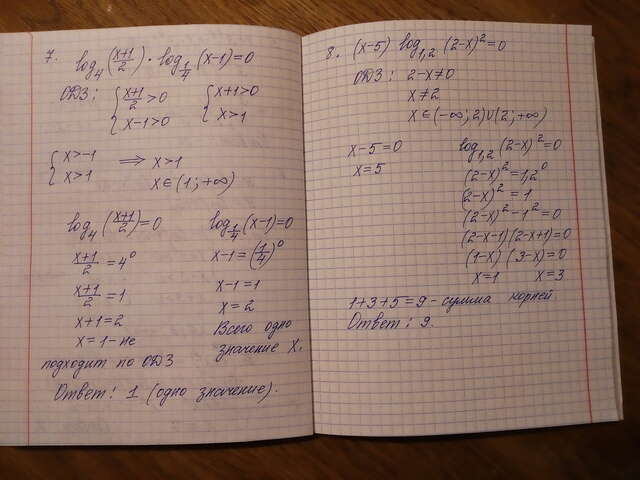 7. log₄(x+1/2) · log_1/4 (x-1) = 0
ОДЗ: { x+1/2 > 0 { x+1 > 0
x-1 > 0 x > 1
{ x > -1 ⟹ x > 1
x > 1 x ∈ (1; +∞)
log₄(x+1/2) = 0
x+1/2 = 4⁰
x+1/2 = 1
x+1 = 2
x = 1 - не
подходит по ОДЗ
log_1/4 (x-1) = 0
x-1 = (1/4)⁰
x-1 = 1
x = 2
Всего одно
значение x.
Ответ: 1 (одно значение).
8. (x-5) log₁,₂ (2-x)² = 0
ОДЗ: 2-x ≠ 0
x ≠ 2
x ∈ (-∞; 2) ∪ (2; +∞)
x-5 = 0
x = 5
log₁,₂ (2-x)² = 0
(2-x)² = 1,2⁰
(2-x)² = 1
(2-x)² - 1² = 0
(2-x-1)(2-x+1) = 0
(1-x)(3-x) = 0
x = 1 x = 3
1+3+5 = 9 - сумма корней
Ответ: 9.